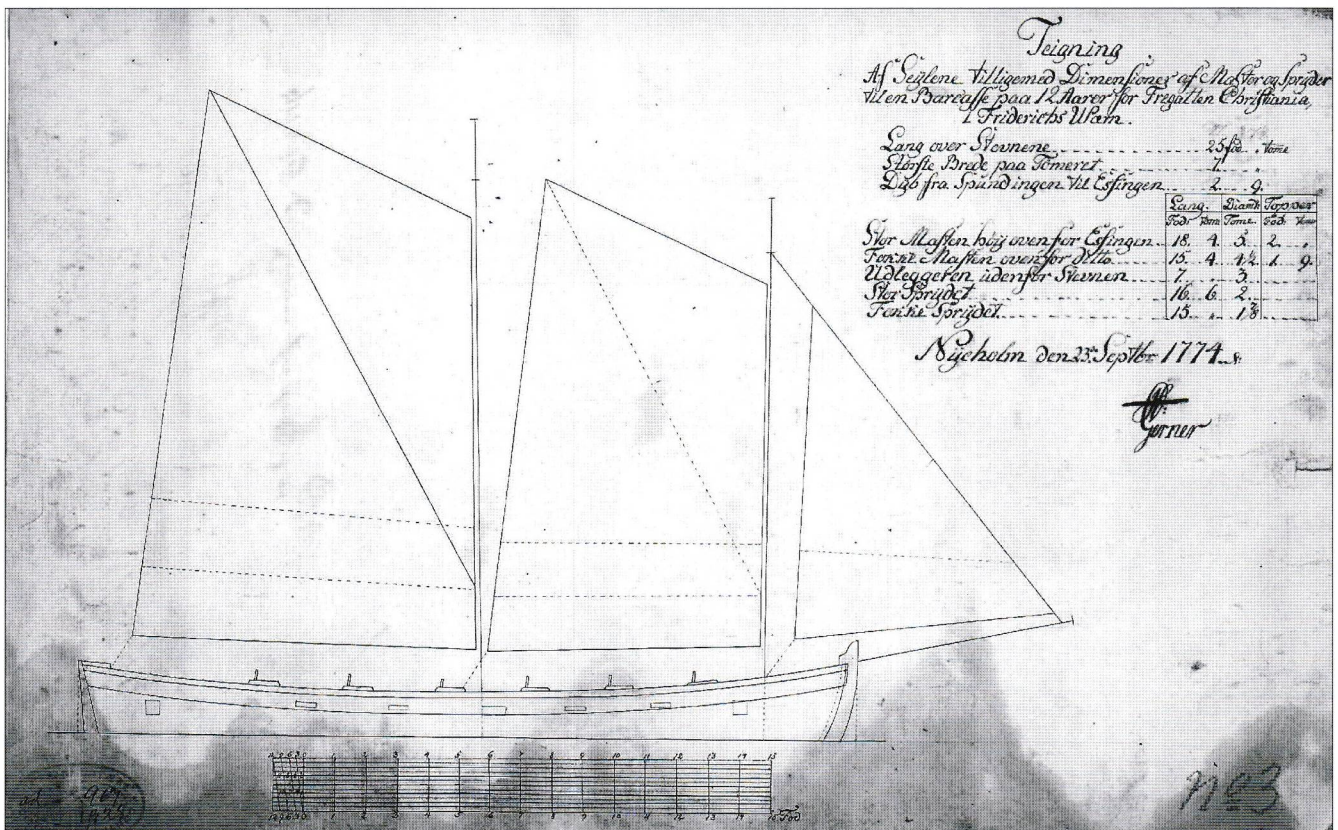 Teigning
Af Seÿlene tilligemed Dimensioner af Master og Sprÿder
til en Barcasse paa 12 Aarer for Fregatten Christiania,
i Friderichs Wærn.
Lang over Stevnene 25 fod „ tome
Største Brede paa Tømeret 7 „
Dÿb fra Spundingen til Essingen 2 9
Lang. Diamt. Topper
Fod. Tom. Tome. Fod. Tom.
Stor Masten høÿ ovenfor Essingen 18. 4. 5. 2. „
Fokke Masten ovenfor ditto 15. 4 4½ 1. 9.
Udleggeren udenfor Stevnen 7. „ 3.
Stor Sprÿdet 16. 6. 2.
Fokke Sprÿdet 15. „ 1⅞
Nÿeholm den 23. Septbr 1774.
Gerner
12 9 6 3 0 1 2 3 4 5 6 7 8 9 10 11 12 13 14 15
12 9 6 3 0 1 2 3 4 5 6 7 8 9 10 11 12 13 14 15 Fod
No 3
ad